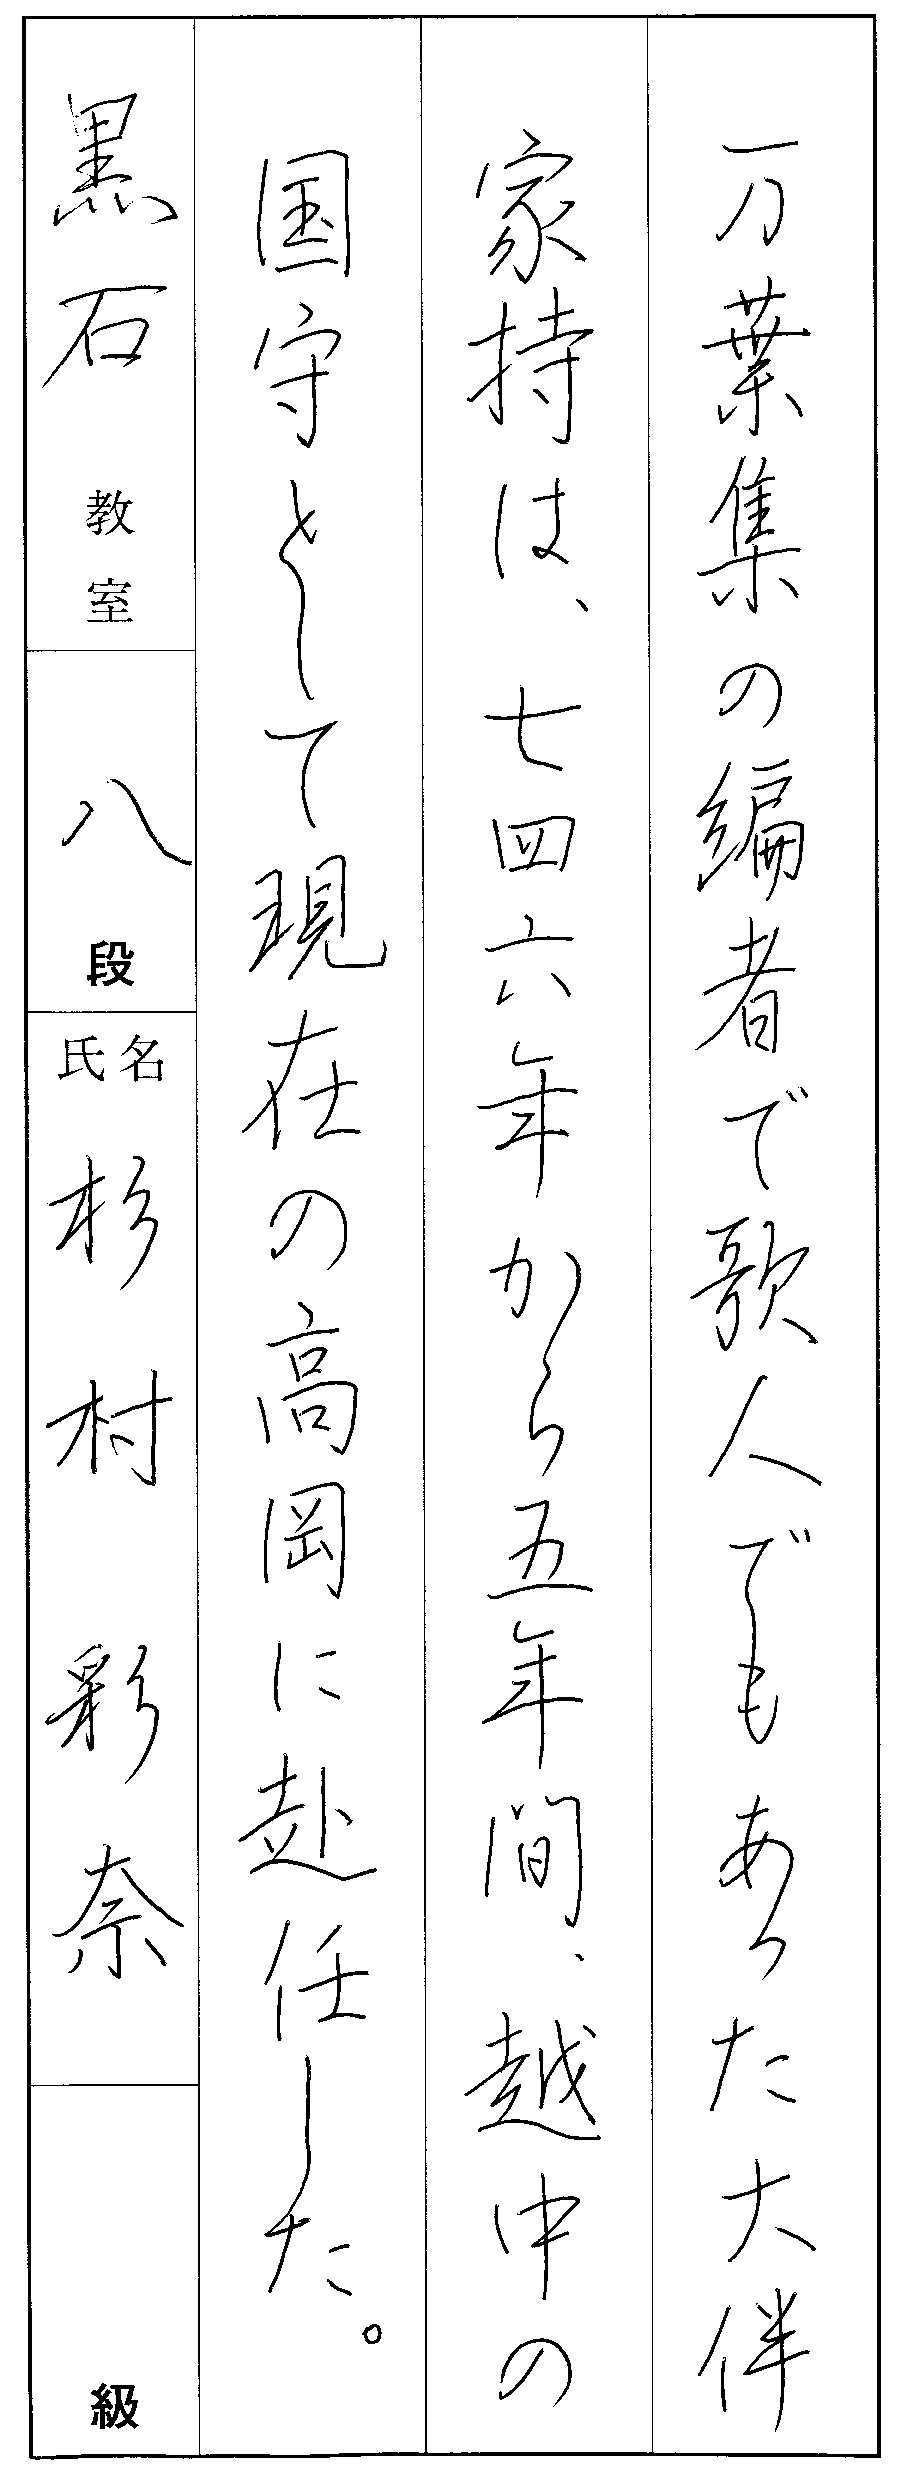 万葉集の編者で歌人でもあった大伴
家持は、七四六年から五年間、越中の
国守として現在の高岡に赴任した。
黒石教室
八段
氏名
杉村 彩奈
級